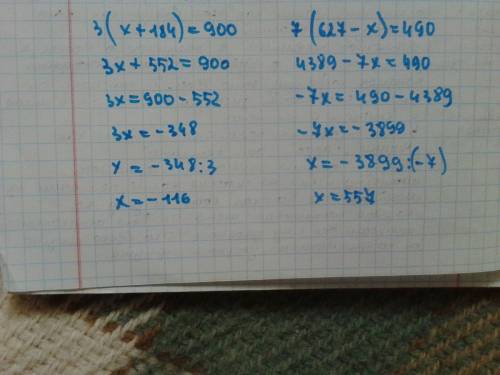 3(x+184)=900
3x+552=900
3x=900-552
3x=-348
x=-348:3
x=-116
7(627-x)=490
4389-7x=490
-7x=490-4389
-7x=-3899.
x=-3899:(-7)
x=557